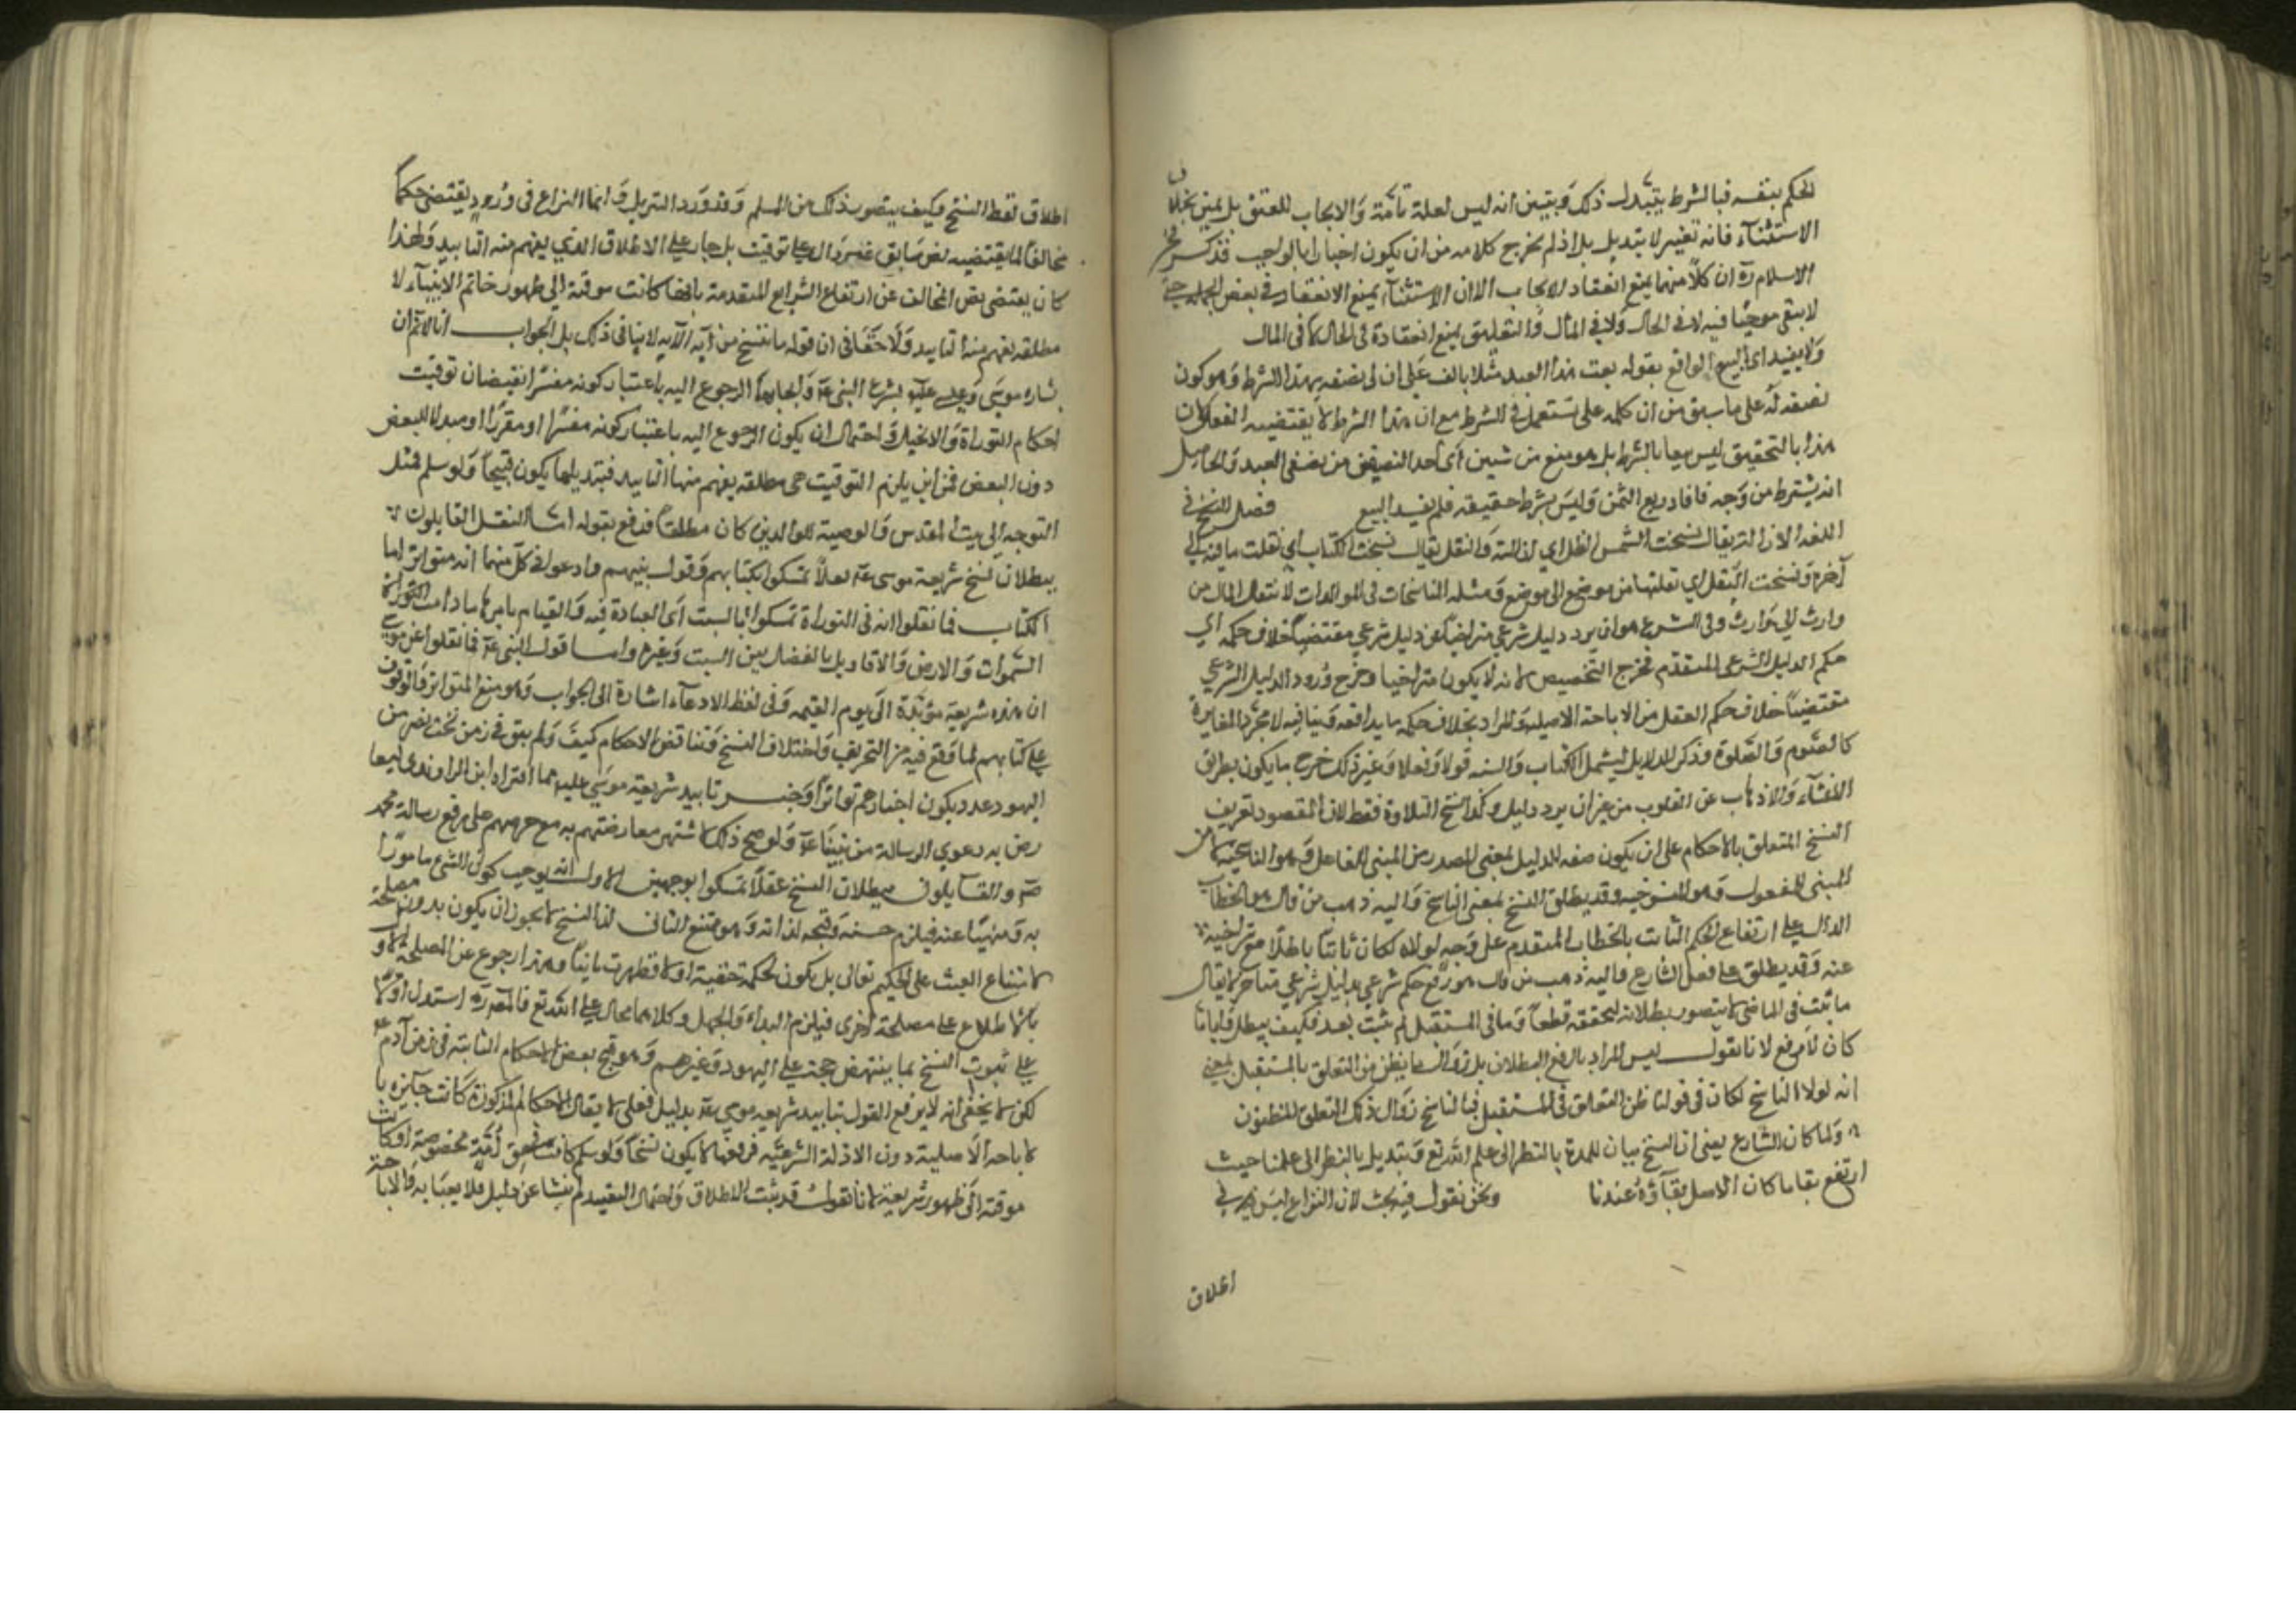 الحكم بنفسه فبالشرط يتبدل ذلك وتبين انه ليس لعلة تامة والايجاب للعتق بل يمين بخلاف
الاستثناء فانه تغيير لا تبديل بل اذ لم يخرج كلامه من ان يكون اخبارا بالواجب فذكر فخر
الاسلام ره ان كلا منهما يمنع انعقاد الايجاب الا ان الاستثناء يمنع الانعقاد في بعض الجملة حتى
لا يبقى موجبا فيه لا في الحال ولا في المآل والتعليق يمنع انعقاده في الحال لا في المآل
ولا يفيد اى البيع الواقع بقوله بعت هذا العبد مثلا بالف على ان لى نصفه بهذا الشرط وهو كون
نصفه له على ما سبق من ان كلمه على تستعمل في الشرط مع ان هذا الشرط لا يقتضيه العقد لان
هذا بالتحقيق ليس بيعا بالشرط بل هو منع من شيئين اى احد النصيفين من نصفى العبد والحاصل
انه يشترط من وجه فافاد ربع الثمن وليس بشرط حقيقه فلم يفسد البيع فصل النسخ في
اللغه الازالة يقال نسخت الشمس الظل اي ازالته والنقل يقال نسخت الكتاب اي نقلت ما فيه الى
آخره ونسخت النحل اي نقلتها من موضع الى موضع ومثله المناسخات في المواريث لانتقال المال من
وارث الى وارث وفى الشرع هو ان يرد دليل شرعي متراخيا عن دليل شرعي مقتضيا خلاف حكمه اي
حكم الدليل الشرعى المتقدم فخرج التخصيص لانه لا يكون متراخيا وخرج ورود الدليل الشرعي
مقتضيا خلاف حكم العقل من الاباحة الاصلية والمراد بخلاف حكمه ما يدافعه وينافيه لا مجرد المغايرة
كالصوم والصلوة وذكر الدلايل ليشمل الكتاب والسنه قولا وفعلا وغير ذلك خرج ما يكون بطريق
الانساء والاذهاب عن القلوب من غير ان يرد دليل وكذا نسخ التلاوة فقط لان المقصود تعريف
النسخ المتعلق بالاحكام على ان يكون صفه للدليل بمعنى المصدر من المبنى للفاعل وهو الناسخية لا من
المبنى للمفعول وهو المنسوخيه وقد يطلق النسخ بمعنى الناسخ واليه ذهب من قال هو الخطاب
الدال على ارتفاع الحكم الثابت بالخطاب المتقدم على وجه لولاه لكان ثابتا مع تراخيه
عنه وقد يطلق على فعل الشارع واليه ذهب من قال هو رفع حكم شرعي بدليل شرعي متأخر لا يقال
ما ثبت فى الماضى لا يتصور بطلانه لتحققه قطعا وما فى المستقبل لم يثبت بعد فكيف يبطل فايا ما
كان لا رفع لانا نقول ليس المراد بالرفع البطلان بل زوال ما يظن من التعلق بالمستقبل بمعنى
انه لولا الناسخ لكان فى قولنا ظن التعلق فى المستقبل فبالناسخ زوال ذلك التعلق المظنون
ولما كان الشارع يعنى ان النسخ بيان للمدة بالنظر الى علم الله تع وتبديل بالنظر الى علمنا حيث
ارتفع بقا ما كان الاصل بقاؤه عندنا ونحن نقول فيه بحث لان النزاع ليس في
اطلاق
اطلاق لفظ النسخ وكيف يتصور ذلك من المسلم وقد ورد التنزيل وانما النزاع فى ورود يقتضى حكما
مخالفا لما يقتضيه نص سابق غير دال على توقيت بل جار على الاطلاق الذي يفهم منه التابيد ولهذا
كان يقتضى نص المخالف عن ارتفاع الشرايع المتقدمة بانها كانت موقتة الى ظهور خاتم الانبيآء لا
مطلقه يفهم منه التابيد ولا خفا فى ان قوله ما ننسخ من آية الآيه لا ينافى ذلك بل الجواب انا لا نم ان
بشاره موسى وعيسى عليه بشرع النبى عم وايجابهما الرجوع اليه باعتبار كونه مفسرا يقتضيان توقيت
احكام التوراة والانجيل واحتمال ان يكون الرجوع اليه باعتبار كونه مفسرا او مقررا او مبدلا للبعض
دون البعض فمن اين يلزم التوقيت هى مطلقه يفهم منها التابيد فتبديلها يكون قبيحا ولو سلم فمثل
التوجه الى بيت المقدس والوصية للوالدين كان مطلقا فدفع بقوله اما النقل القايلون
ببطلان نسخ شريعة موسى عم نقلا تمسكوا بكتابهم وقول نبيهم وادعوا فى كل منهما انه متواتر اما
الكتاب فما نقلوا انه فى التوراة تمسكوا بالسبت اى العبادة فيه والقيام بامرها ما دامت
السموات والارض والاقاويل بالفضل بين السبت وغيره واما قول النبى عم فما نقلوا عن موسى
ان هذه شريعة مؤبدة الى يوم القيمه وفى لفظ الادعاء اشارة الى الجواب وهو منع المتواتر والوثوق
على كتابهم لما وقع فيه من التحريف واختلاف النسخ وتناقض الاحكام كيف ولم يبق فى زمن بخت نصر من
اليهود عدد يكون اخبارهم تواترا وخبر تابيد شريعة موسى عليه مما افتراه ابن الراوندى ليعا
رض به دعوي الرسالة من نبينا عم ولو صح ذلك لاشتهر معارضتهم به مع حرصهم على دفع رسالة محمد
صم والقايلون ببطلان النسخ عقلا تمسكوا بوجهين الاول انه يوجب كون الشئ مامورا
به ومنهيا عنه فيلزم حسنه وقبحه لذاته وهو ممتنع الثانى انا النسخ لا يجوز ان يكون بدون مصلحة
لامتناع العبث على الحكيم تعالى بل يكون لحكمة خفية اولا فظهرت ثانيا وهذا رجوع عن المصلحة الاو
بالاطلاع على مصلحة اخرى فيلزم البداء والجهل وكلاهما محال على الله تع فالمص ره استدل اولا
على ثبوت النسخ بما ينتهض حجة على اليهود وغيرهم وهو نسخ بعض الاحكام الثابتة فى زمن آدم عم
لكن لا يخفى انه لا يدفع القول بتابيد شريعه موسى عم بدليل نقلى لا يقال الاحكام المذكورة كانت جايزه با
لاباحه الاصلية دون الادلة الشرعيه فرفعها لا يكون نسخا ولو سلم كانت فى حق امة مخصوصة او كانت
موقته الى ظهور شريعة لانا نقول قد ثبت الاطلاق واحتمال التقييد لم ينشا عن دليل فلا يعبا به والاباحة